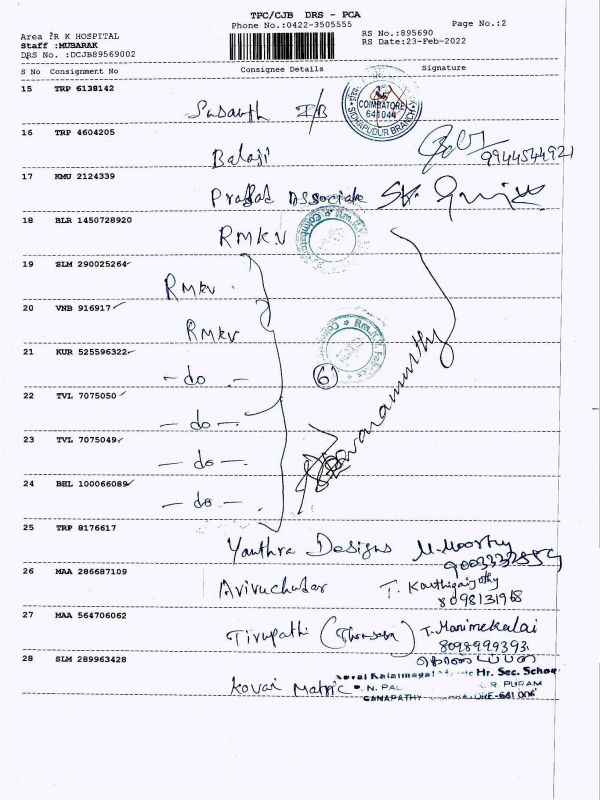 TPC/CJB DRS - PCA
Phone No.:0422-3505555 Page No.:2
Area :R K HOSPITAL RS No.:895690
Staff :MUBARAK RS Date:23-Feb-2022
DRS No. :DCJB89569002
S No Consignment No Consignee Details Signature
15 TRP 6138142
COIMBATORE
641044
SIDHAPUDUR BRANCH
16 TRP 4604205
Balaji 9944544921
17 KMU 2124339
Prasad Associate
18 BLR 1450728920
RMKV
19 SLM 290025264
RMKV
20 VNB 916917
RMKV
21 KUR 525596322
- do - 6
22 TVL 7075050
- do -
23 TVL 7075049
- do -
24 BHL 100066089
- do -
25 TRP 8176617
Yanthra Designs M. Moorthy
26 MAA 286687109
T. Karthigaijothy
27 MAA 564706062
Tirupathi T. Manimekalai
8098999393
28 SLM 289963428
Kovai Matric Hr. Sec. School
R. PURAM
GANAPATHY 641 006